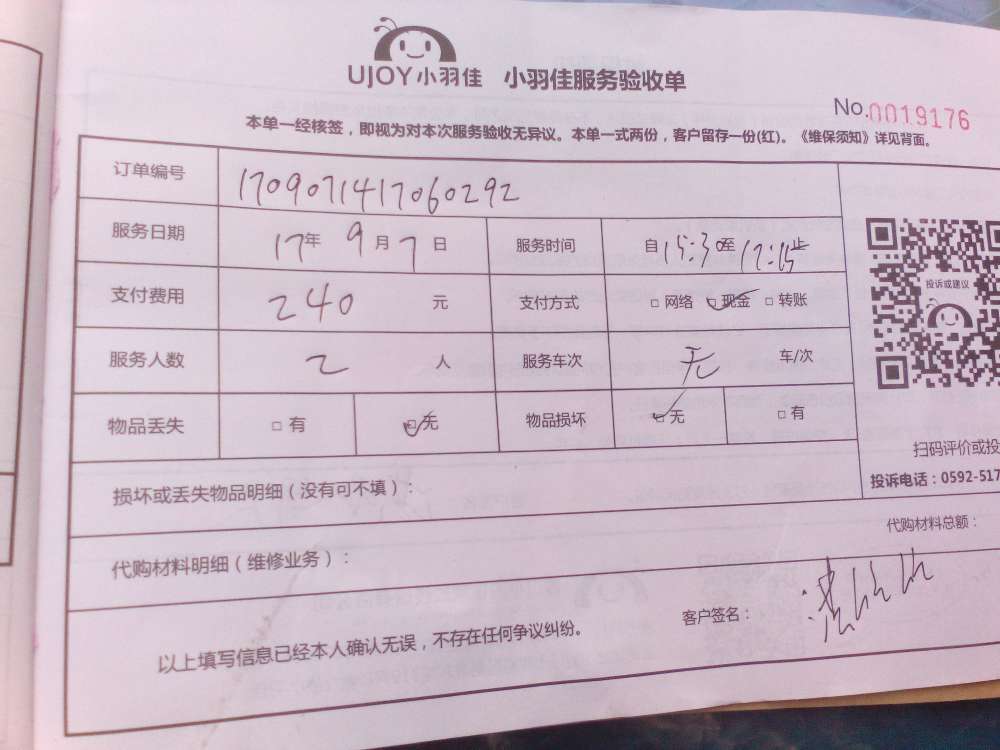 UJOY小羽佳 小羽佳服务验收单
No.0019176
本单一经核签，即视为对本次服务验收无异议。本单一式两份，客户留存一份(红)。《维保须知》详见背面。
订单编号 1709071417060292
服务日期 17年 9月 7日 服务时间 自15:30至17:15止
支付费用 240 元 支付方式 □ 网络 □ 现金 □ 转账
投诉或建议
服务人数 2 人 服务车次 无 车/次
物品丢失 □ 有 □ 无 物品损坏 □ 无 □ 有
扫码评价或投
损坏或丢失物品明细（没有可不填）：
投诉电话：0592-517
代购材料总额：
代购材料明细（维修业务）：
客户签名：
以上填写信息已经本人确认无误，不存在任何争议纠纷。